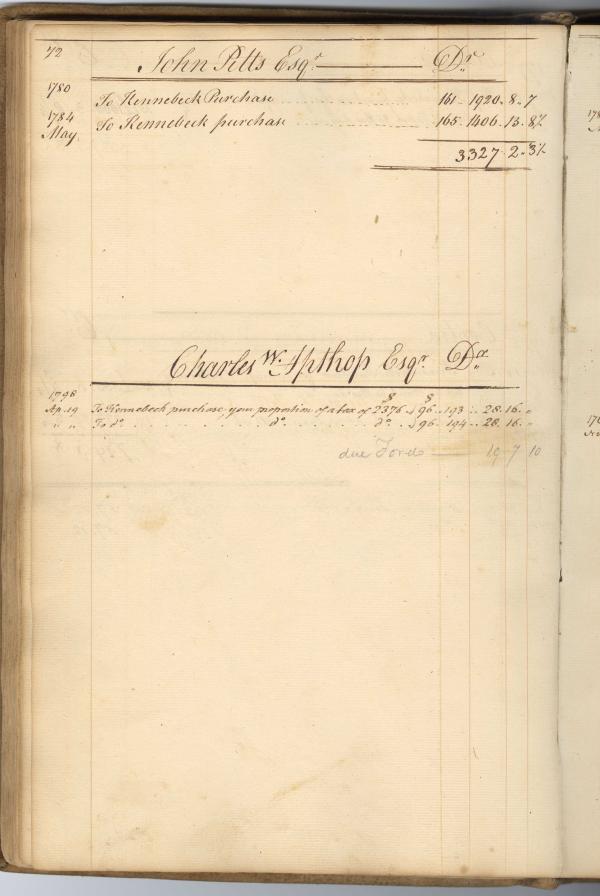 72
John Pitts Esqr Dr
1780 To Kennebeck Purchase 161 1920. 8. 7
1784 May. To Kennebeck purchase 165 1406. 13. 8½
3327 2. 3½
Charles W. Apthop Esqr. Dr
1798
Ap. 19 To Kennebeck purchase your proportion of a tax of $ 2376 $ 96 193 28. 16. "
" " To do. do. do. 96 194 28. 16. "
due Ford 19 7 10
178